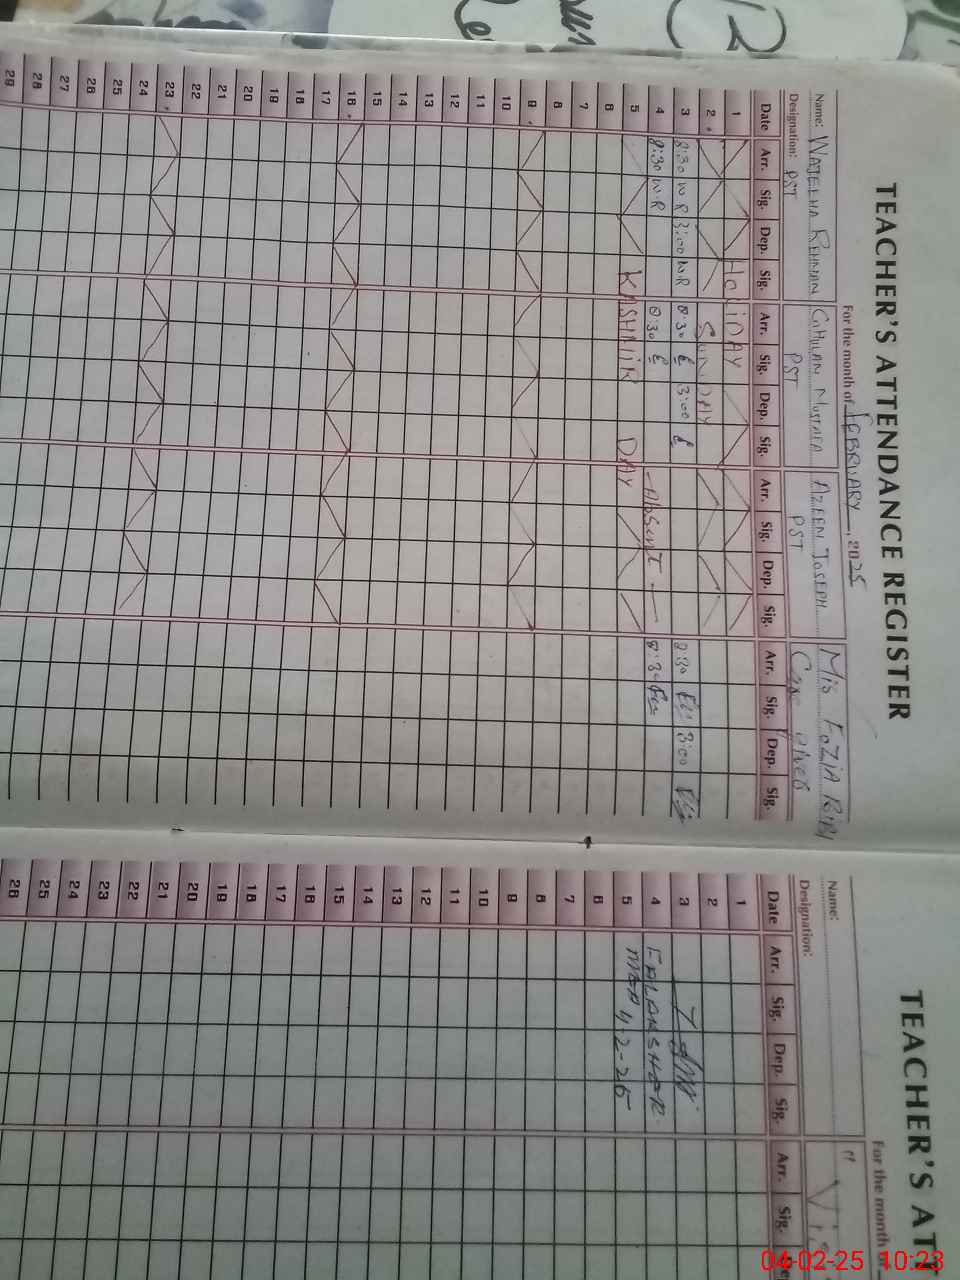 TEACHER'S ATTENDANCE REGISTER
For the month of FEBRUARY, 2025
Name: WAJEEHA REHMAN GHULAM MUSTAFA AZEEN JOSEPH Mis FOZIA BiBi
Designation: PST PST PST
Date Arr. Sig. Dep. Sig. Arr. Sig. Dep. Sig. Arr. Sig. Dep. Sig. Arr. Sig. Dep. Sig.
1 HOLIDAY
2 SUNDAY
3 8:30 W.R 3:00 W.R 8:30 3:00 8:30 3:00
4 8:30 W.R 8:30 - Absent - 8:30
5 KASHMIR DAY
6
7
8
9
10
11
12
13
14
15
16
17
18
19
20
21
22
23
24
25
26
27
28
29
TEACHER'S ATT
For the month of
Name:
Designation:
Date Arr. Sig. Dep. Sig. Arr. Sig. Dep
1
2
3
4
5 MEA 4-2-25
6
7
8
9
10
11
12
13
14
15
16
17
18
19
20
21
22
23
24
25
26
04-02-25 10:23